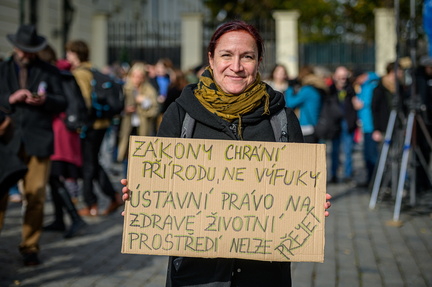 ZÁKONY CHRÁNÍ
PŘÍRODU, NE VÝFUKY
ÚSTAVNÍ PRÁVO NA
ZDRAVÉ ŽIVOTNÍ
PROSTŘEDÍ NELZE
PŘEJET!